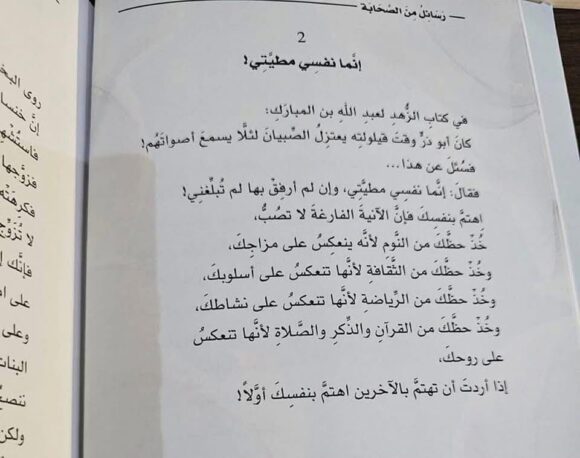 رَسَائِلُ مِنَ الصَّحَابَة
2
إنَّما نفسِي مطيَّتِي!
في كتابِ الزُّهدِ لعبدِ اللّٰهِ بن المباركِ:
كانَ أبو ذرٍّ وقتَ قيلولتِه يعتزِلُ الصِّبيانَ لئلَّا يسمعَ أصواتَهُم!
فسُئلَ عن هذا...
فقالَ: إنَّما نفسِي مطيَّتِي، وإن لم أرفِقْ بها لم تُبلِّغنِي!
اهتمَّ بنفسكَ فإنَّ الآنيةَ الفارغةَ لا تصُبُّ،
خُذْ حظَّكَ من النَّومِ لأنَّه ينعكِسُ على مزاجِكَ،
وخُذْ حظَّكَ من الثَّقافةِ لأنَّها تنعكسُ على أسلوبكَ،
وخُذْ حظَّكَ من الرِّياضةِ لأنَّها تنعكسُ على نشاطكَ،
وخُذْ حظَّكَ من القرآنِ والذِّكرِ والصَّلاةِ لأنَّها تنعكسُ
على روحكَ،
إذا أردتَ أن تهتمَّ بالآخرين اهتمَّ بنفسِكَ أوَّلاً!
روى البخ
إنَّ خنسا
فزوَّجها
فكرِهَتْه
لا تُزَوِّج
فإنَّك إ
على ا
وعلى
البنات
ولكن